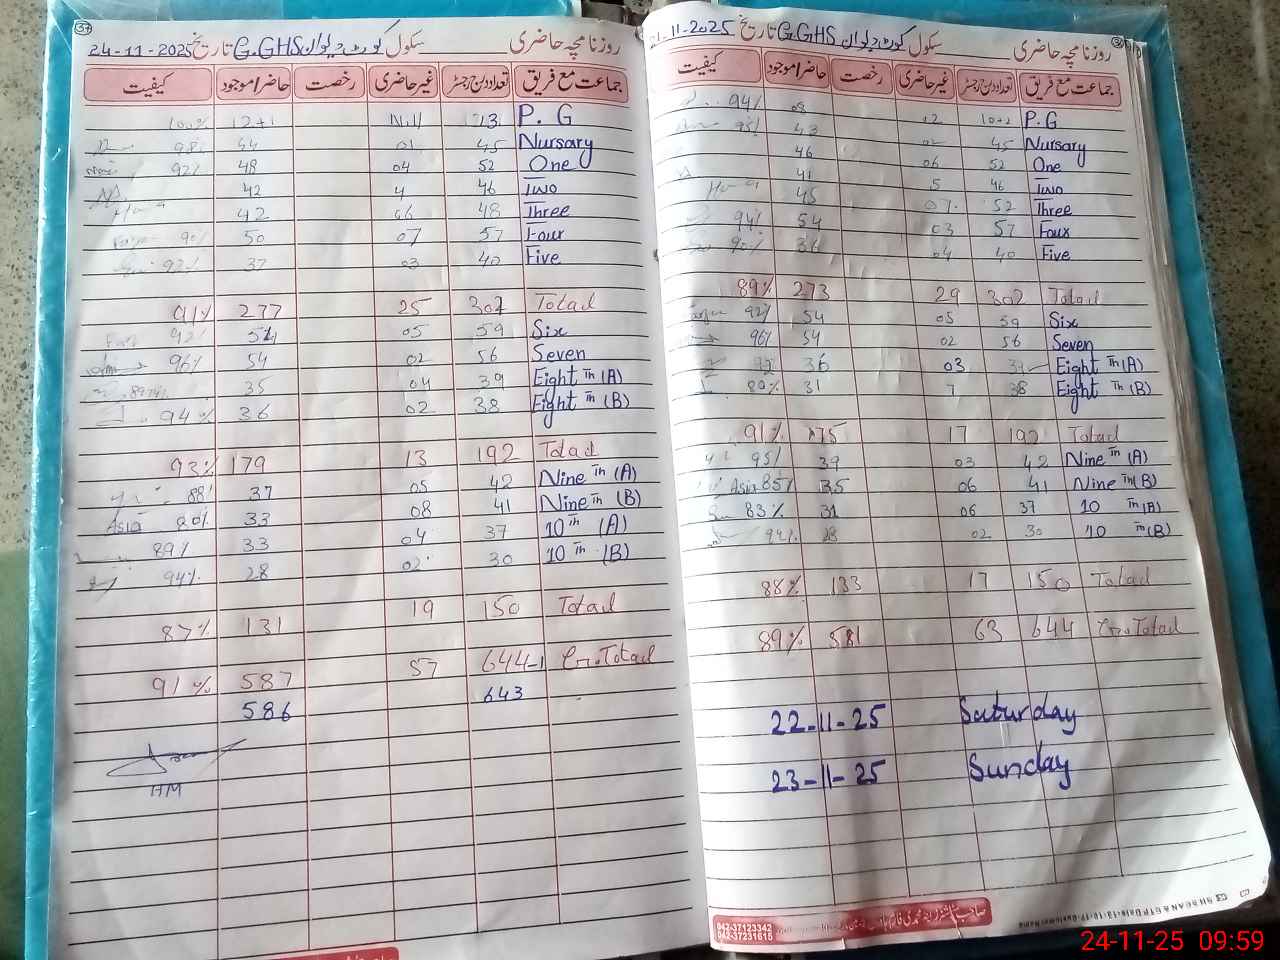 37
روزنامچہ حاضری سکول کوٹ دیوان G.GHS تاریخ 24-11-2025
جماعت مع فریق تعداد درج رجسٹر غیر حاضری رخصت حاضر/موجود کیفیت
100% 12+1 Nill 13 P.G
98% 44 01 45 Nursary
92% 48 04 52 One
42 4 46 Two
42 06 48 Three
90% 50 07 57 Four
92% 37 03 40 Five
91% 277 25 302 Total
92% 54 05 59 Six
96% 54 02 56 Seven
89% 35 04 39 Eight Th (A)
94% 36 02 38 Eight Th (B)
93% 179 13 192 Total
88% 37 05 42 Nine Th (A)
Asia 80% 33 08 41 Nine Th (B)
89% 33 04 37 10 th (A)
94% 28 02 30 10 Th (B)
87% 131 19 150 Total
91% 587 57 644-1 Gr.Total
586 643
HM
روزنامچہ حاضری سکول کوٹ دیوان G.GHS تاریخ 21-11-2025
جماعت مع فریق تعداد درج رجسٹر غیر حاضری رخصت حاضر/موجود کیفیت
94% 08 02 10+2 P.G
95% 43 02 45 Nursary
46 06 52 One
41 5 46 Two
45 07 52 Three
94% 54 03 57 Four
90% 36 04 40 Five
89% 273 29 302 Total
92% 54 05 59 Six
96% 54 02 56 Seven
92 36 03 39 Eight Th (A)
80% 31 7 38 Eight Th (B)
91% 175 17 192 Total
95% 39 03 42 Nine Th (A)
Asia 85% 35 06 41 Nine Th (B)
83% 31 06 37 10 Th (A)
94% 28 02 30 10 Th (B)
88% 133 17 150 Total
89% 581 63 644 Gr.Total
22-11-25 Saturday
23-11-25 Sunday
042-37123342
042-37231615
24-11-25 09:59